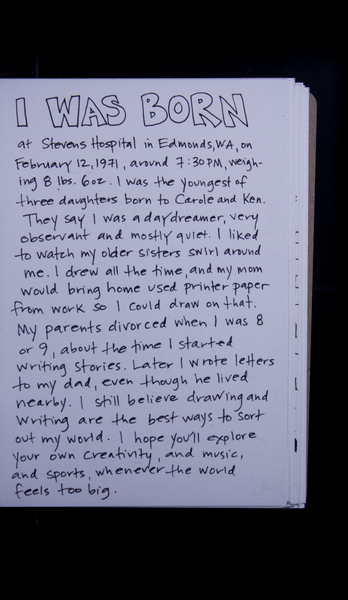 I WAS BORN
at Stevens Hospital in Edmonds, WA, on
February 12, 1971, around 7:30 PM, weigh-
ing 8 lbs. 6 oz. I was the youngest of
three daughters born to Carole and Ken.
They say I was a daydreamer, very
observant and mostly quiet. I liked
to watch my older sisters swirl around
me. I drew all the time, and my mom
would bring home used printer paper
from work so I could draw on that.
My parents divorced when I was 8
or 9, about the time I started
writing stories. Later I wrote letters
to my dad, even though he lived
nearby. I still believe drawing and
writing are the best ways to sort
out my world. I hope you'll explore
your own creativity, and music,
and sports, whenever the world
feels too big.